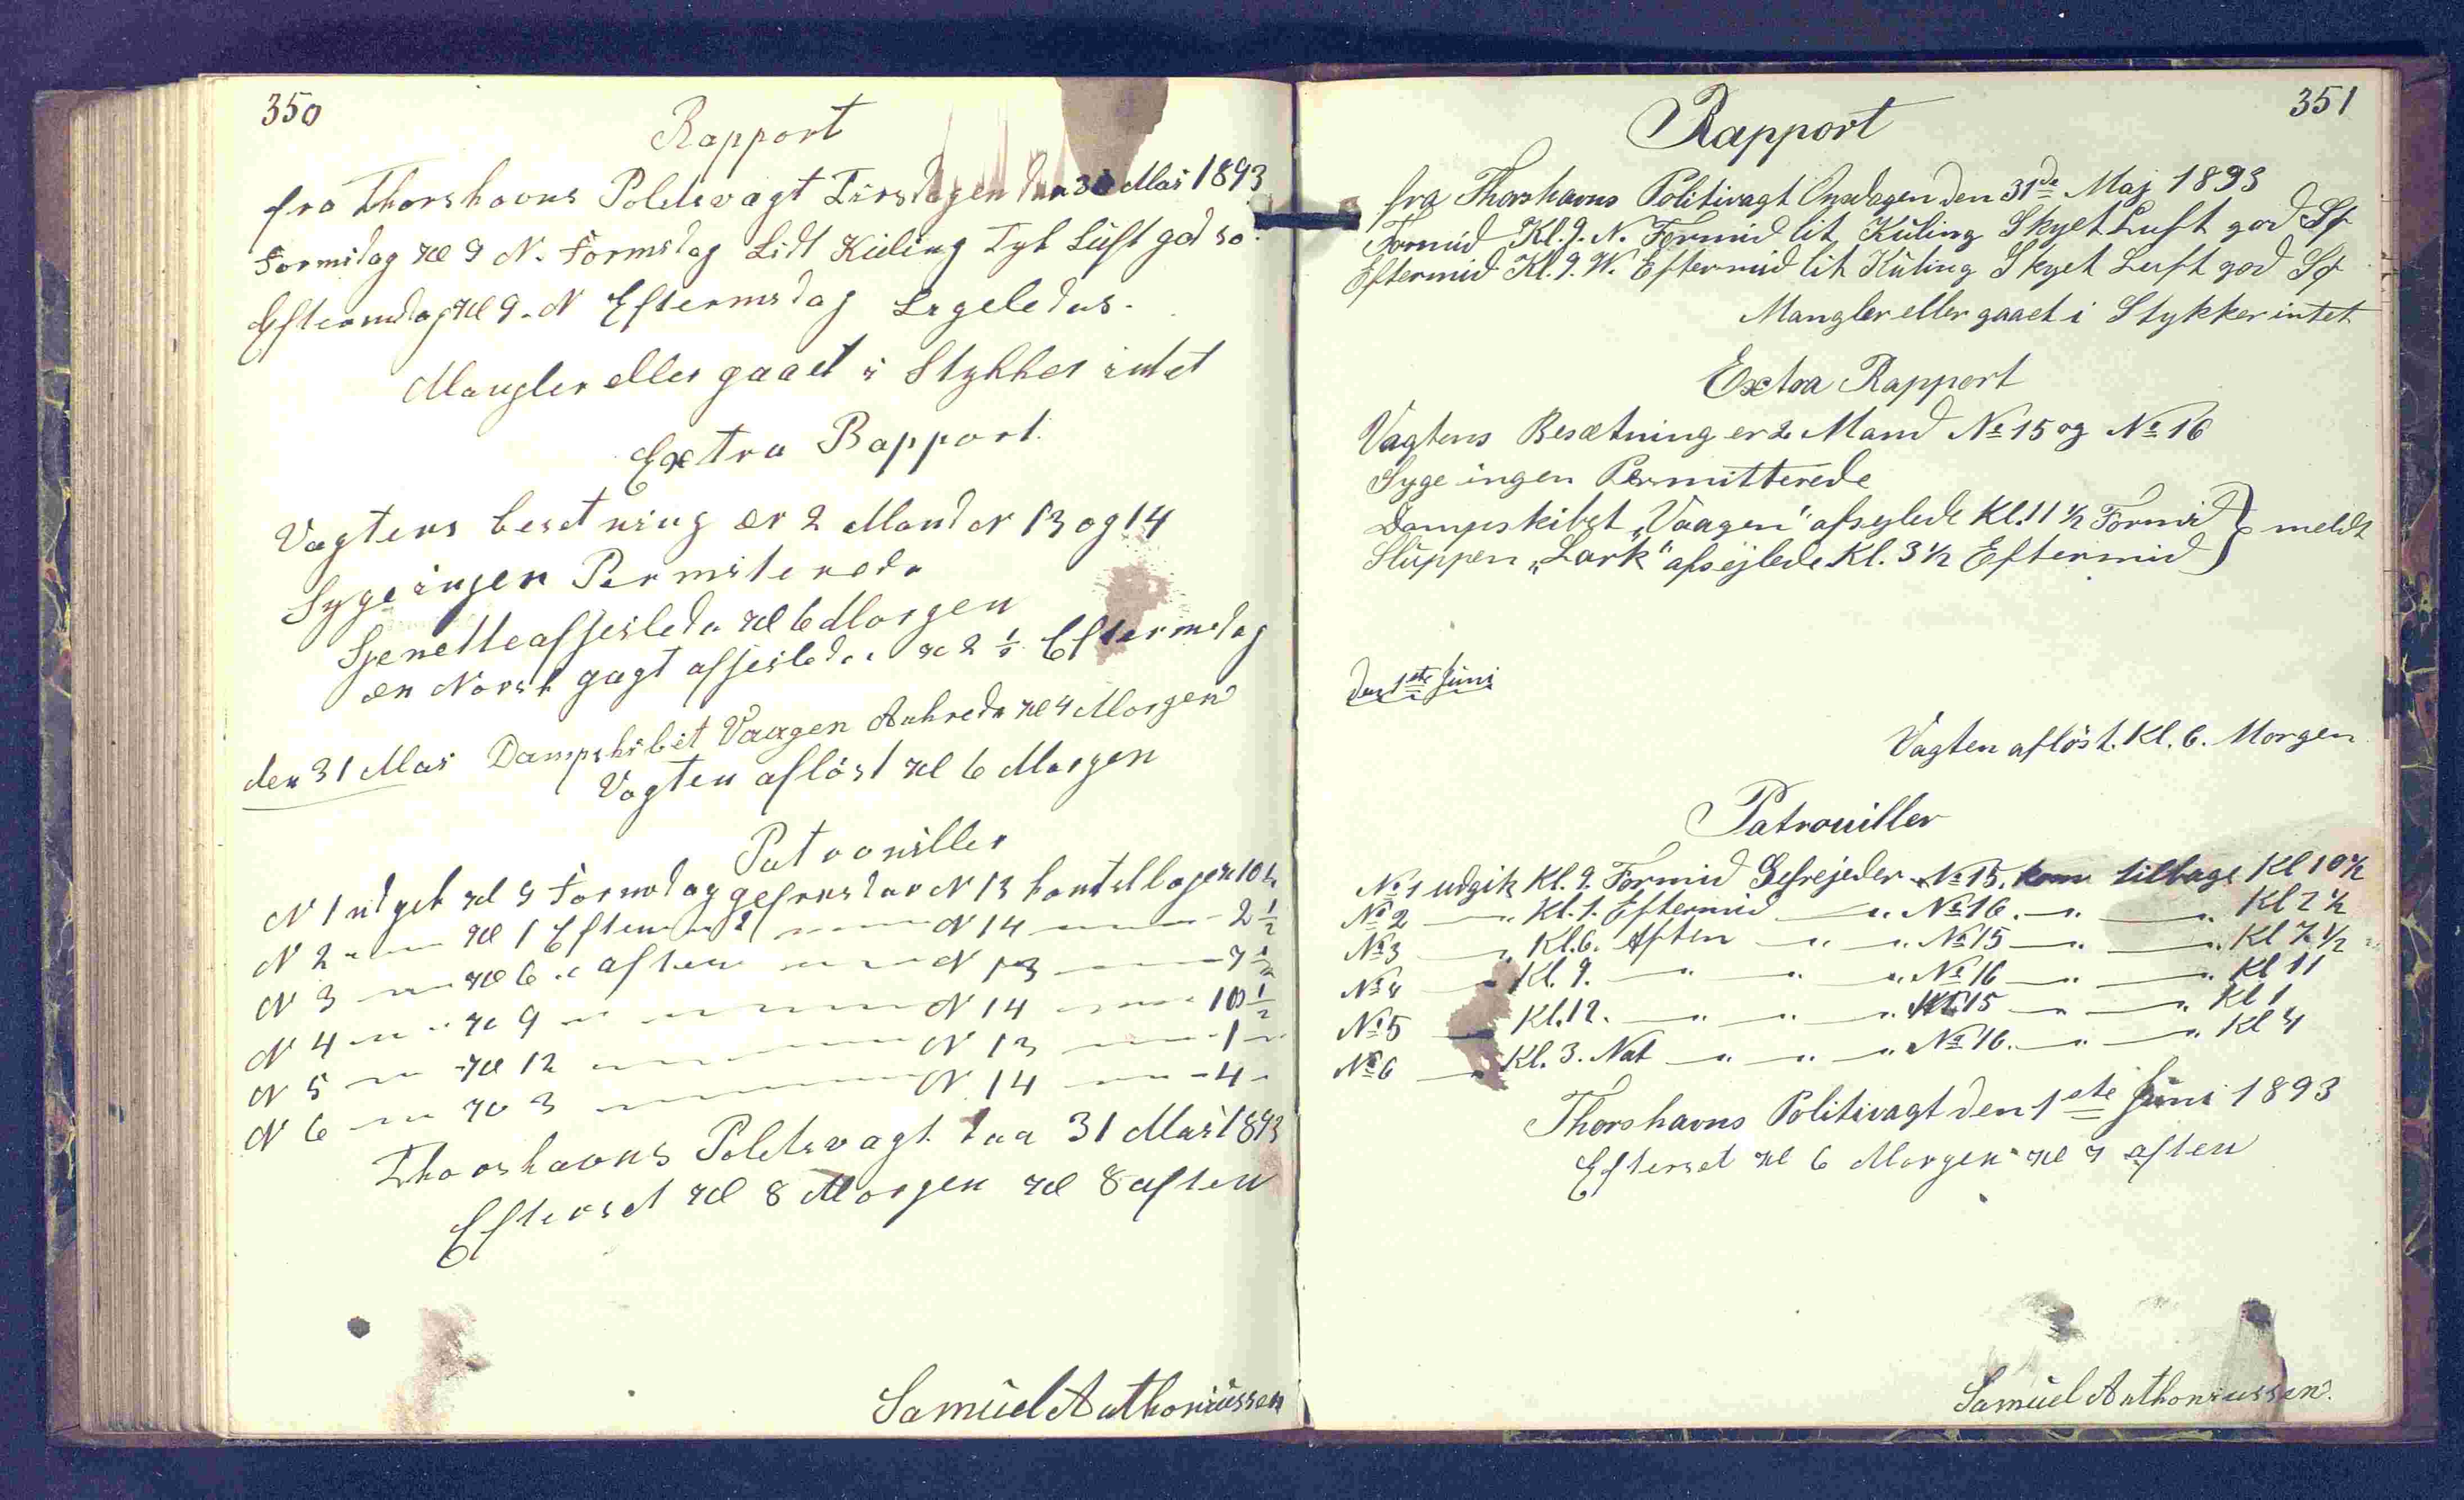 350
Rapport
fra Thorshavns Politivagt Tirsdagen den 30 Mai 1893
Formidag Kl 9 N. Formidag Lidt Kuling Tyk Luft god sø.
Eftermidag Kl 9. N Eftermidag Ligeledes.
Mangler eller gaaet i Stykker intet
Extra Rapport.
Vagtens besetning er 2 Mand Nr 13 og 14
Syge ingen Permiterede
afseilede Kl 6 Morgen
en Norsk gagt afseilede Kl 2 ½ Eftermidag
den 31 Mai Dampskibet Vaagen Ankrede Kl 4 Morgen
Vagten afløst Kl 6 Morgen
Patrouiller
N 1 udgik Kl 9 Formidag gefreider N 13 kom tilbage Kl 10 ½
N 2 " " Kl 1 Eftermid " " N 14 " " 2 ½
N 3 " " Kl 6 " aften " " N 13 " " 7 ½
N 4 " " Kl 9 " " " N 14 " " 10 ½
N 5 " " Kl 12 " " " N 13 " " 1 "
N 6 " " Kl 3 " " " N 14 " " 4 "
Thorshavns Politivagt den 31 Mai 1893
Efterset Kl 8 Morgen Kl 8 aften
Samuel Anthoniussen
351
Rapport
fra Thorshavns Politivagt Onsdagen den 31de Maj 1893
Formid Kl. 9. N. Formid lit Kuling Skyet Luft god Sø
Eftermid Kl. 9. N. Eftermid lit Kuling Skyet Luft god Sø
Mangler eller gaaet i Stykker intet
Extra Rapport
Vagtens Besætning er 2 Mand No 15 og No 16
Syge ingen Permitterede
Dampskibet „Vaagen" afseglede Kl. 11 ½ Formid } meldt
Sluppen „Lark" afsejlede Kl. 3 ½ Eftermid
den 1ste Juni
Vagten afløst. Kl. 6. Morgen
Patrouiller
No 1 udgik Kl. 9. Formid Gefrejeder No 15. kom tilbage Kl 10 ½
No 2 " Kl. 1. Eftermid " No 16. " " Kl 2 ½
No 3 " Kl. 6. Aften " " No 15 " " Kl 7 ½
No 4 " Kl. 9. " " " No 16 " " Kl 11
No 5 " Kl. 12. " " " No 15 " " Kl 1
No 6 " Kl. 3. Nat " " " No 16. " " Kl 4
Thorshavns Politivagt den 1ste Juni 1893
Efterset Kl 6 Morgen Kl 7 aften
Samuel Anthoniussen.